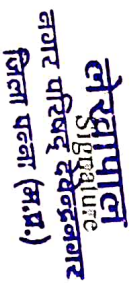 लेखापाल
Signature
नगर परिषद् देवेन्द्रनगर
जिला पन्ना (म.प्र.)